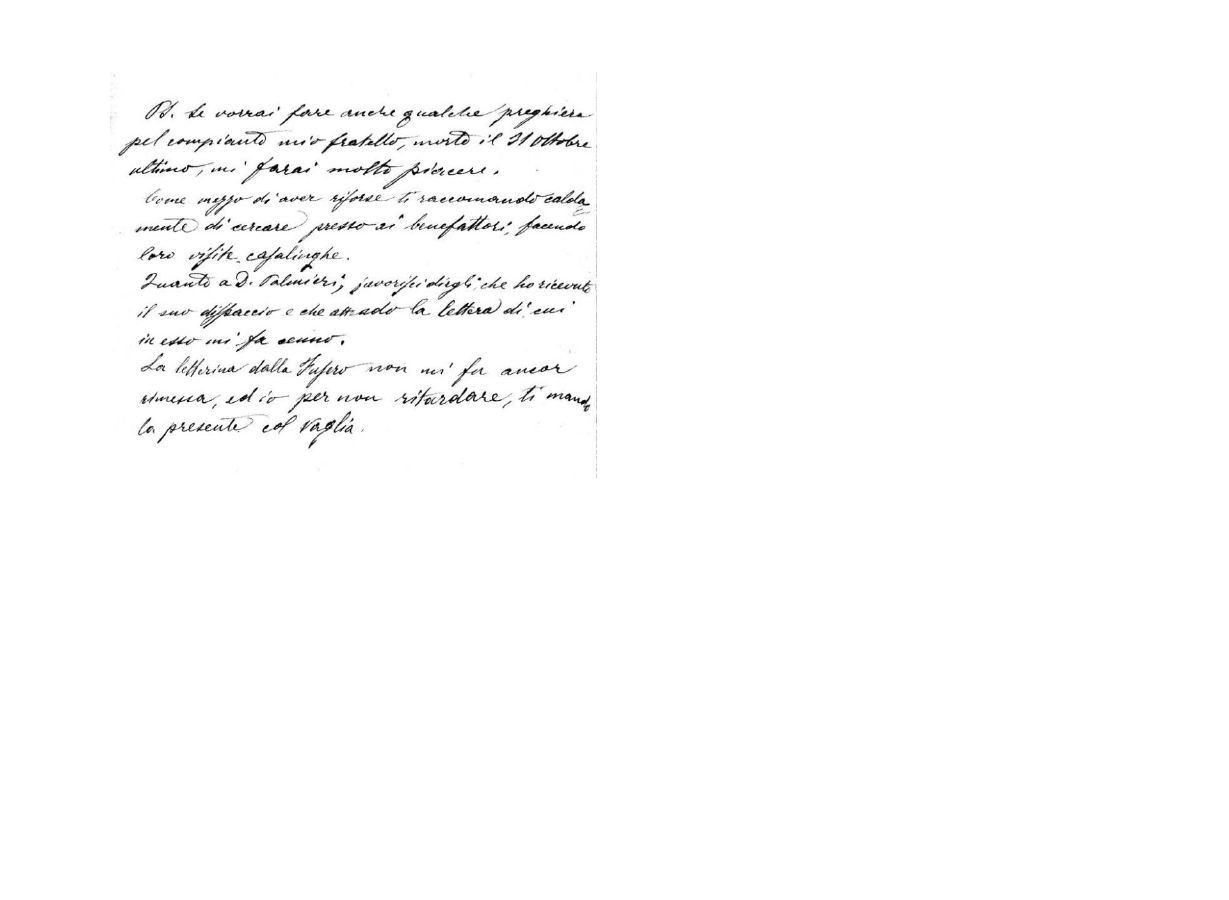 PS. Se vorrai fare anche qualche preghiera
pel compianto mio fratello, morto il 31 Ottobre
ultimo, mi farai molto piacere.
Come mezzo di aver risorse ti raccomando calda
mente di cercare presso ai benefattori, facendo
loro visite casalinghe.
Quanto a D. Palmieri, favorisci dirgli che ho ricevuto
il suo dispaccio e che attendo la lettera di cui
in esso mi fa cenno.
La letterina dalla non mi fu ancor
rimessa, ed io per non ritardare, ti mando
la presente col vaglia.